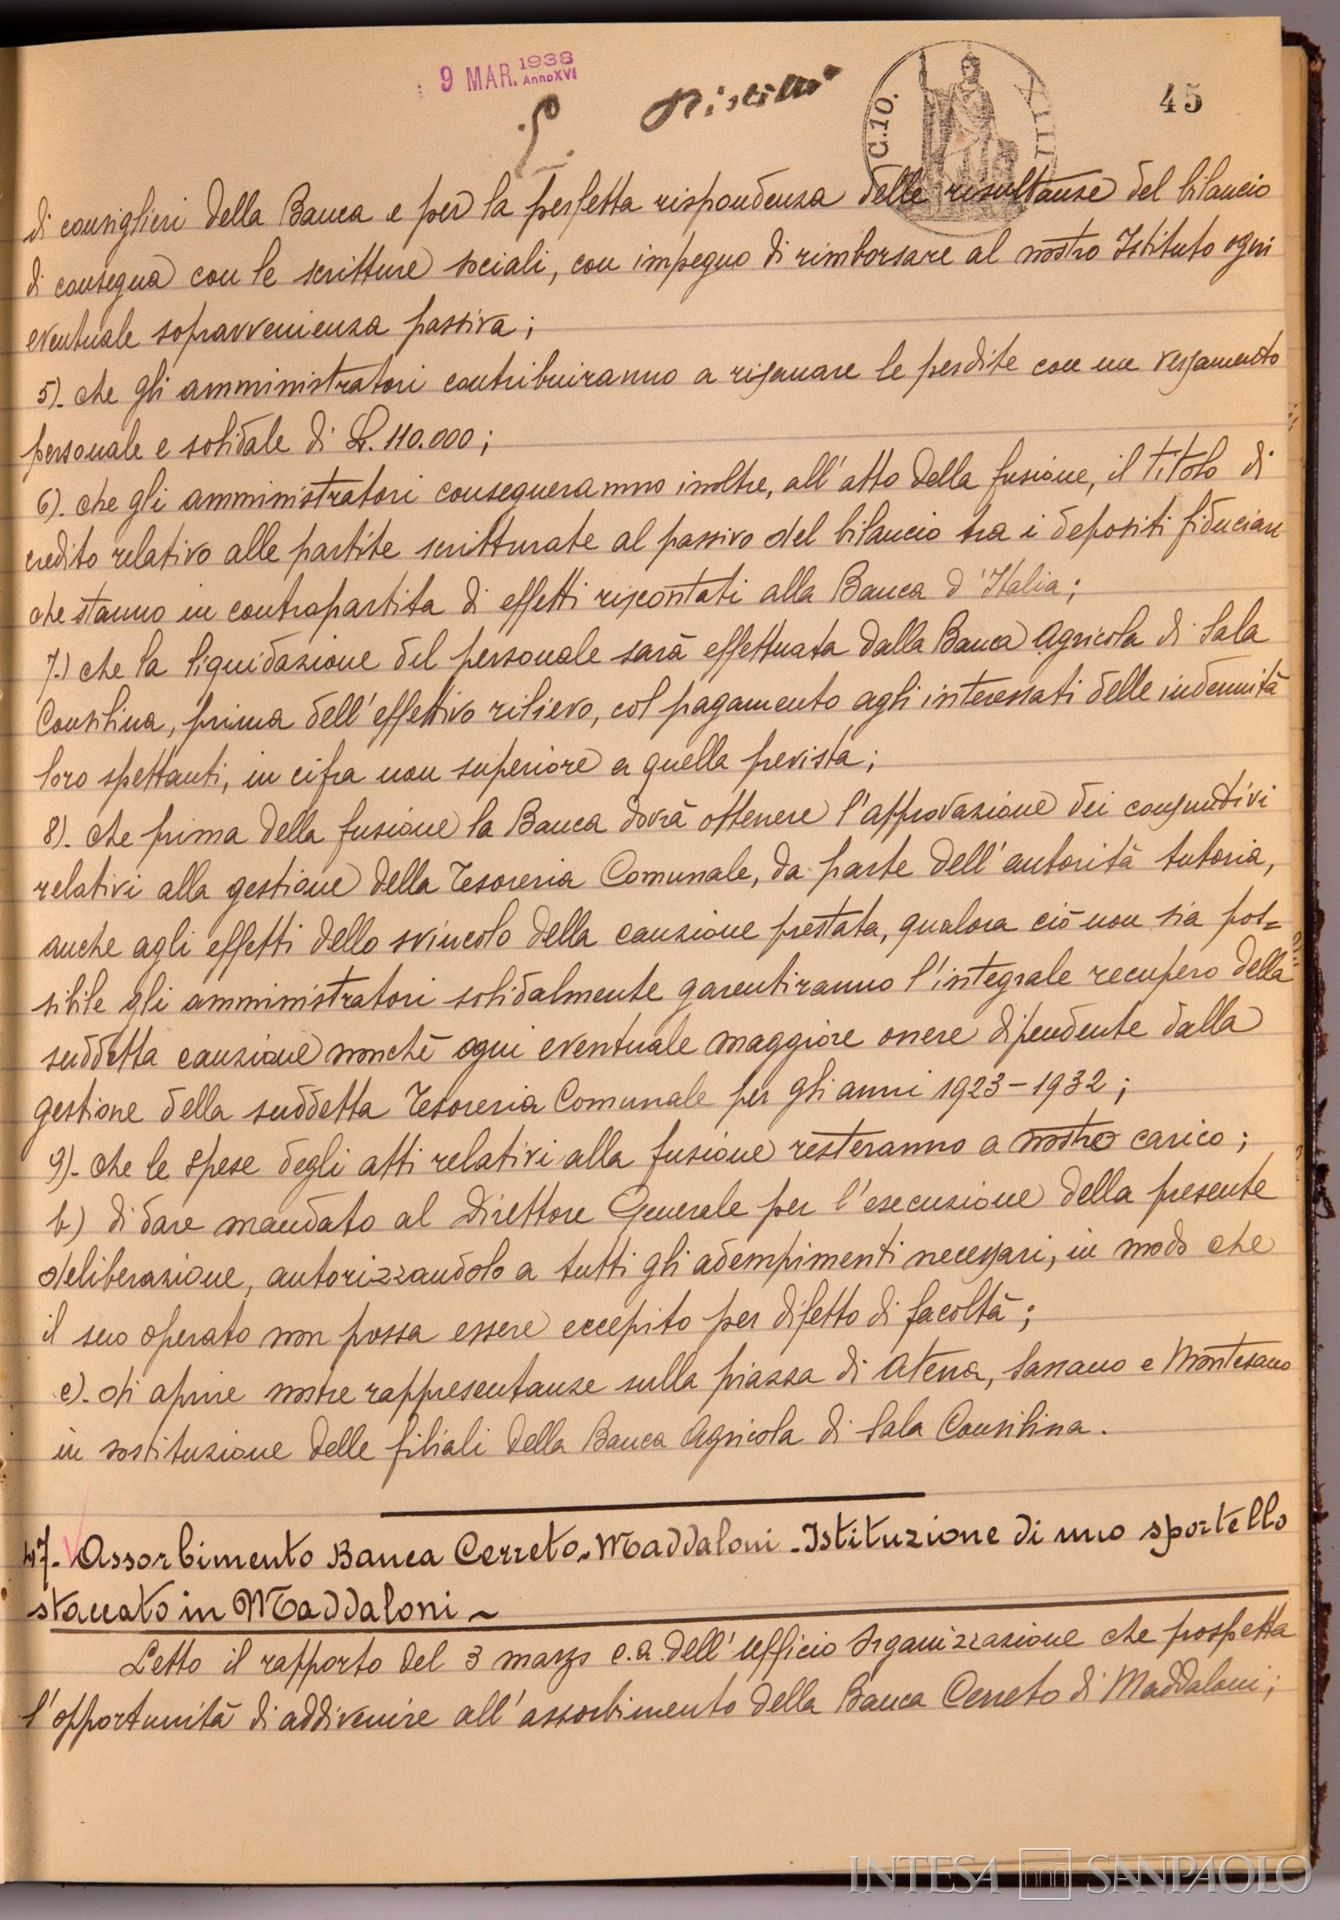 9 MAR. 1938
Anno XVI
45
C.10.
XIII
di consiglieri della Banca e per la perfetta rispondenza delle risultanze del bilancio
di consegna con le scritture sociali, con impegno di rimborsare al nostro Istituto ogni
eventuale sopravvenienza passiva;
5). che gli amministratori contribuiranno a risanare le perdite con un versamento
personale e solidale di L. 110.000;
6). che gli amministratori consegneranno inoltre, all'atto della fusione, il titolo di
credito relativo alle partite scritturate al passivo del bilancio tra i depositi fiduciari
che stanno in contropartita di effetti riscontati alla Banca d'Italia;
7.) che la liquidazione del personale sarà effettuata dalla Banca Agricola di Sala
Consilina, prima dell'effettivo rilievo, col pagamento agli interessati delle indennità
loro spettanti, in cifra non superiore a quella prevista;
8). che prima della fusione la Banca dovrà ottenere l'approvazione dei consuntivi
relativi alla gestione della Tesoreria Comunale, da parte dell'autorità tutoria,
anche agli effetti dello svincolo della cauzione prestata, qualora ciò non sia pos=
sibile gli amministratori solidalmente garentiranno l'integrale recupero della
suddetta cauzione nonchè ogni eventuale maggiore onere dipendente dalla
gestione della suddetta Tesoreria Comunale per gli anni 1923-1932;
9). che le spese degli atti relativi alla fusione resteranno a nostro carico;
b) di dare mandato al Direttore Generale per l'esecuzione della presente
deliberazione, autorizzandolo a tutti gli adempimenti necessari, in modo che
il suo operato non possa essere eccepito per difetto di facoltà;
c). di aprire nostre rappresentanze sulla piazza di Atena, Sassano e Montesano
in sostituzione delle filiali della Banca Agricola di Sala Consilina.
47. Assorbimento Banca Cerreto-Maddaloni - Istituzione di uno sportello
staccato in Maddaloni ~
Letto il rapporto del 3 marzo c.a. dell'ufficio Organizzazione che prospetta
l'opportunità di addivenire all'assorbimento della Banca Cerreto di Maddaloni;
INTESA SANPAOLO